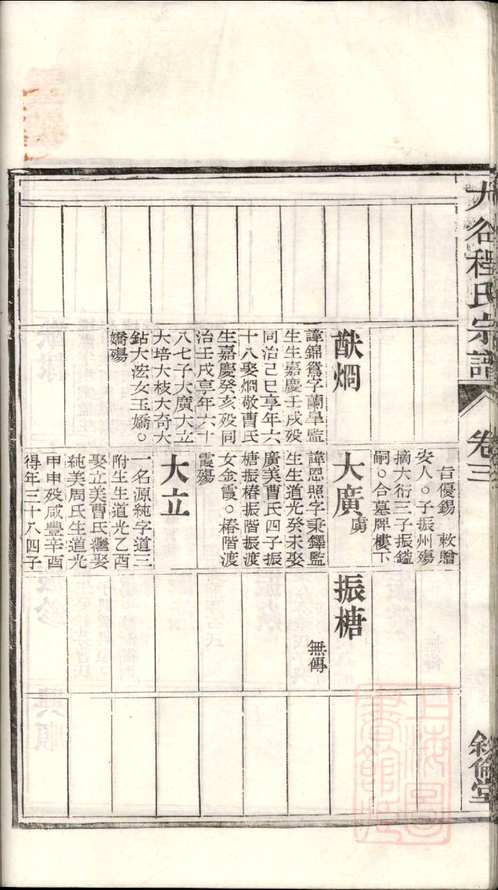 大谷程氏宗譜
卷三
敘倫堂
貢優錫 敕贈
安人。子振州殤
摘大衍三子振鑑
嗣。合墓牌樓下
猷焵
諱錦鴛字蘭皐監
生生嘉慶壬戌歿
同治己巳享年六
十八娶焵敬曹氏
生嘉慶癸亥歿同
治壬戌享年六十
八七子大廣大立
大培大枝大奇大
鈷大浤女玉嬌。
嬌殤
大廣虜
諱恩照字秉鐸監
生生道光癸未娶
廣美曹氏四子振
榶振椿振階振渡
女金霞。椿階渡
霞殤
大立
一名源純字道三
附生生道光乙酉
娶立美曹氏繼娶
純美周氏生道光
甲申歿咸豐辛酉
得年三十八四子
振榶
無傳
上海圖
書館藏